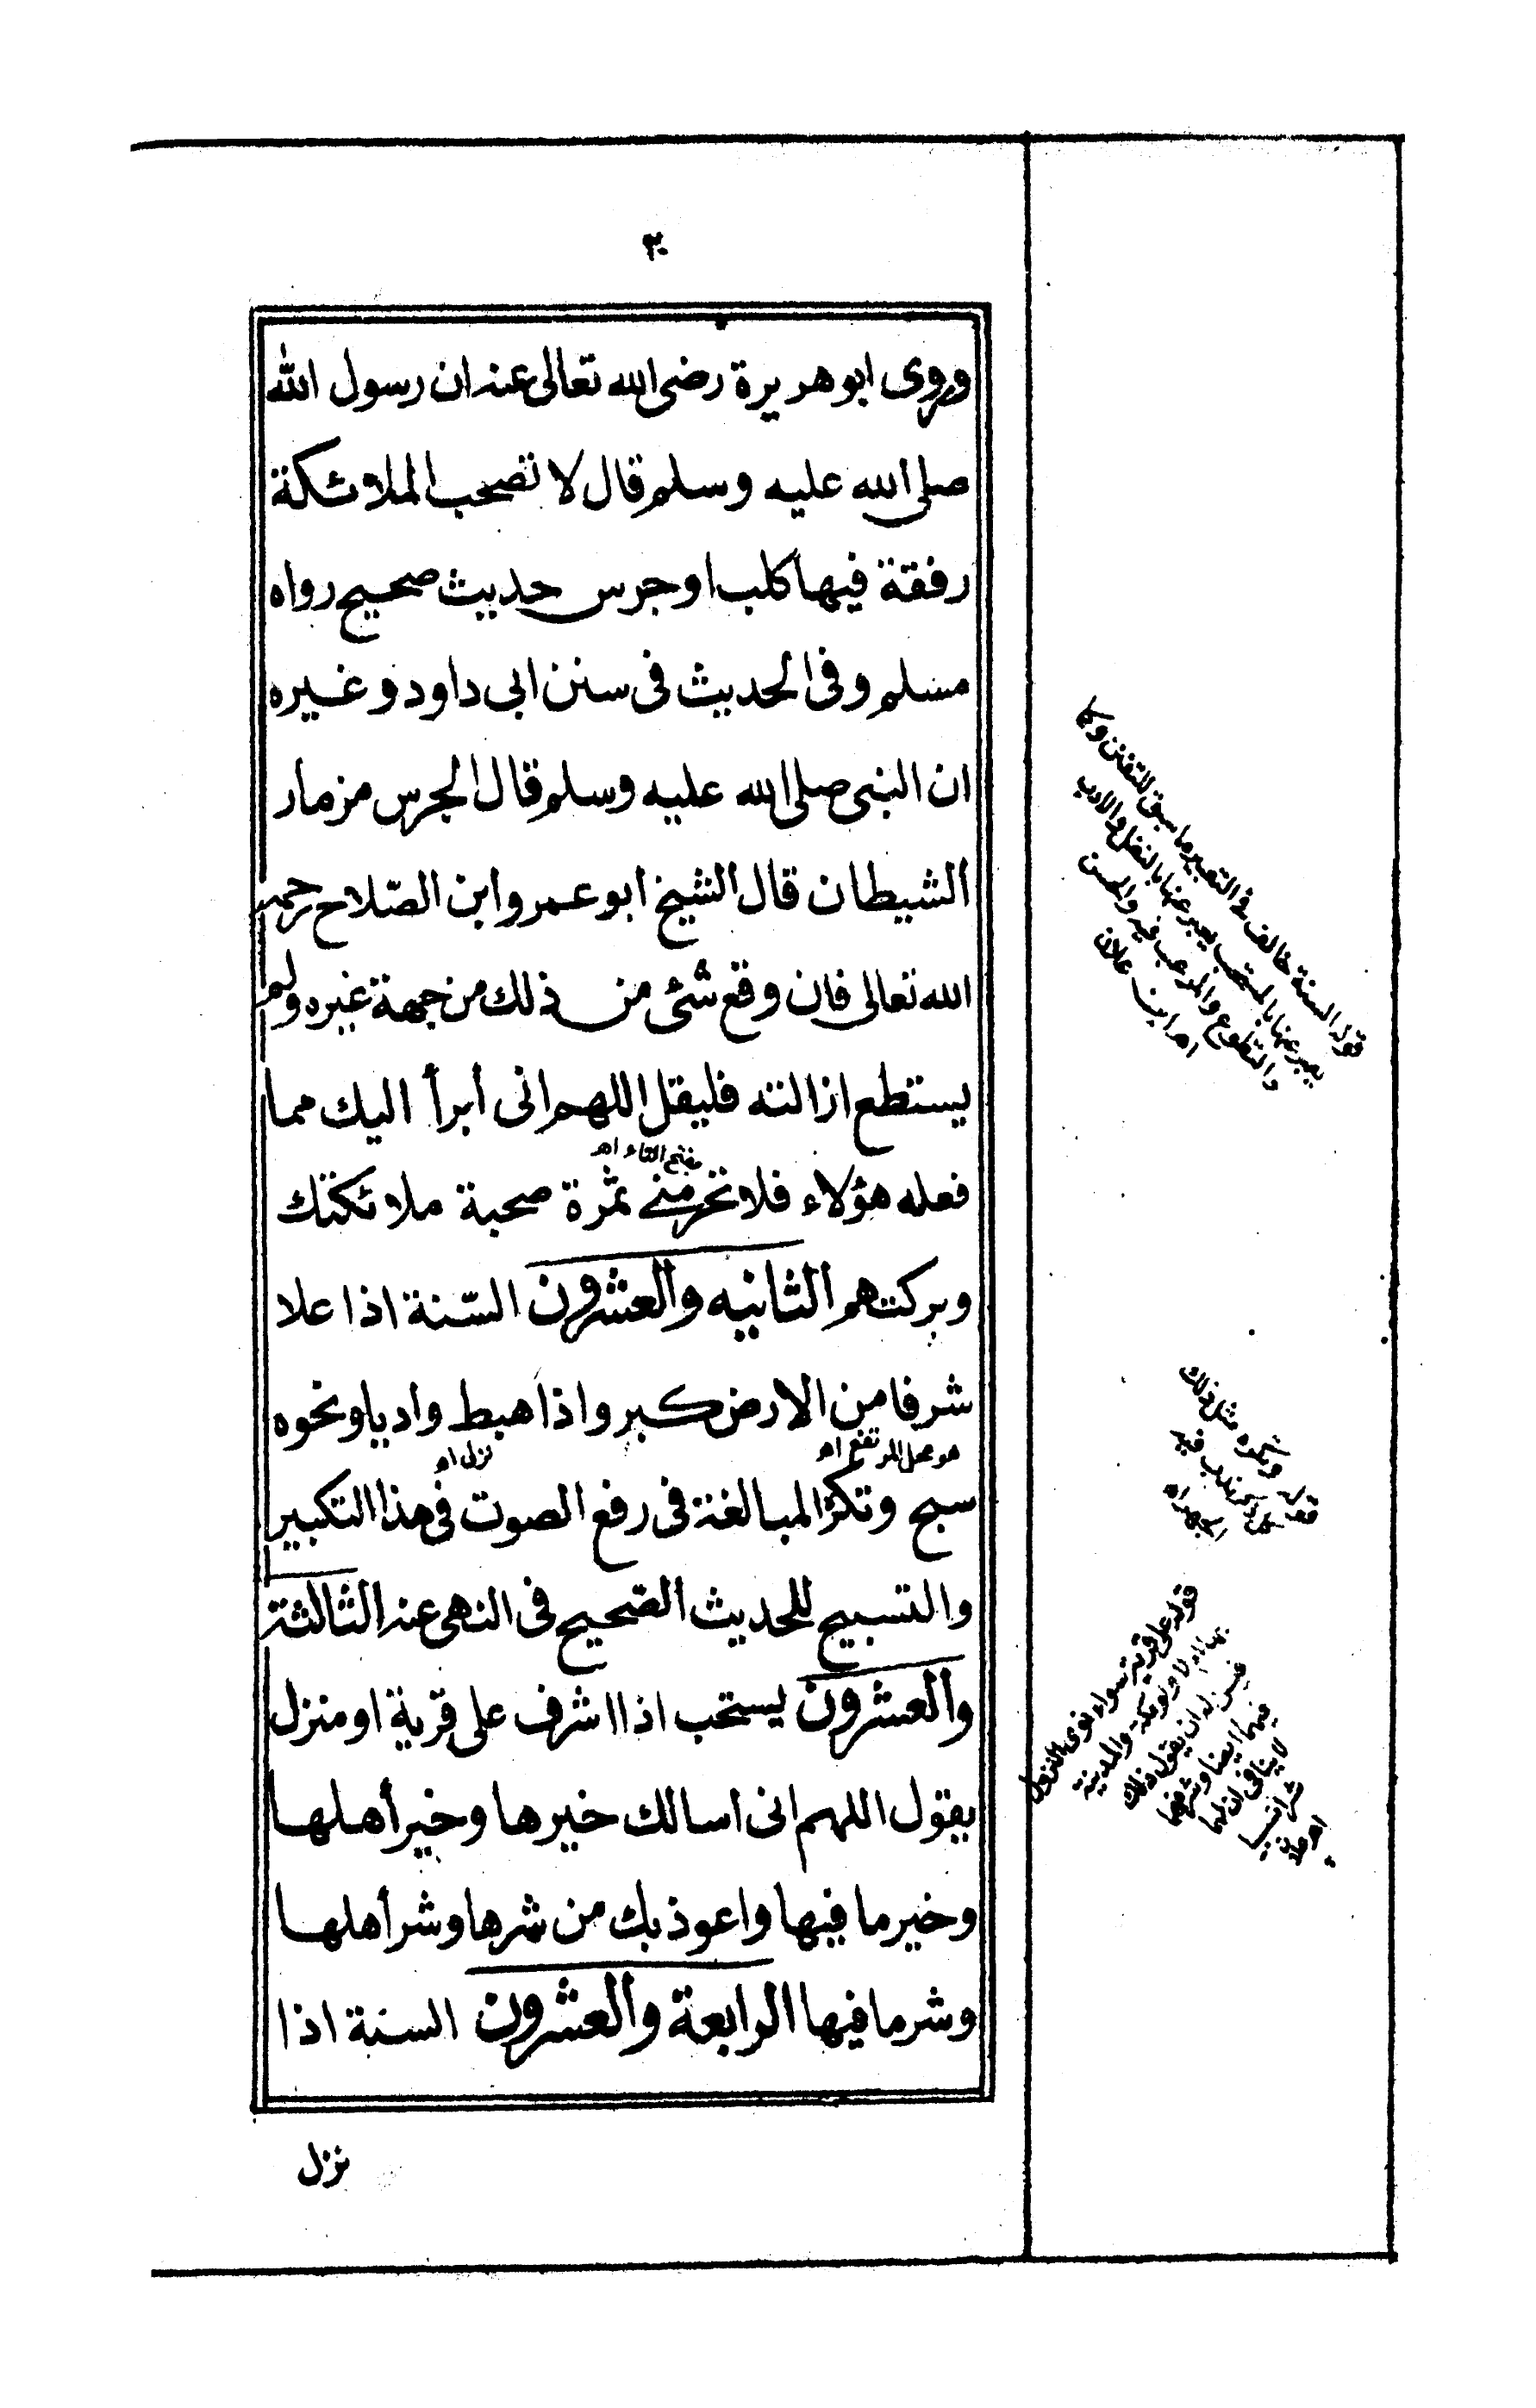 ٣٠
وروى ابو هريرة رضي الله تعالى عنه ان رسول الله
صلى الله عليه وسلم قال لا تصحب الملائكة
رفقة فيها كلب او جرس حديث صحيح رواه
مسلم وفى الحديث فى سنن ابى داود وغيره
ان النبى صلى الله عليه وسلم قال الجرس مزمار
الشيطان قال الشيخ ابو عمرو ابن الصّلاح رحمه
الله تعالى فان وقع شئ من ذلك من جهة غيره ولم
يستطع ازالته فليقل اللهم انى أبرأ اليك مما
بفتح التاء اهـ
فعله هؤلاء فلا تحرمنى ثمرة صحبة ملائكتك
وبركتهم الثانيه والعشرون السّنة اذا علا
شرفا من الارض كبر واذا هبط واديا ونحوه
هو محل المرتفع اهـ نزل اهـ
سبح وتكره المبالغة فى رفع الصوت فى هذا التكبير
والتسبيح للحديث الصّحيح فى النهى عنه الثالثة
والعشرون يستحب اذا اشرف على قرية او منزل
يقول اللهم انى اسالك خيرها وخير أهلها
وخير ما فيها واعوذ بك من شرها وشر أهلها
وشر ما فيها الرابعة والعشرون السنة اذا
نزل
قوله السنة خالف فى التعبير ما سبق للتفنن وكما
يعبر عنها بالمستحب يعبر عنها بالنفل والادب
والتطوع والمرغب فيه والحسن
اهـ ابن علان
قوله وتكره مثل ذلك
الجهر اهـ
قوله على قرية سواء نوى النزول
بها ام لا ونحو مكة والمدينة
فيسن له ان يقول ذلك
فيهما ايضا وشرفهما
لا ينافى ان لهما